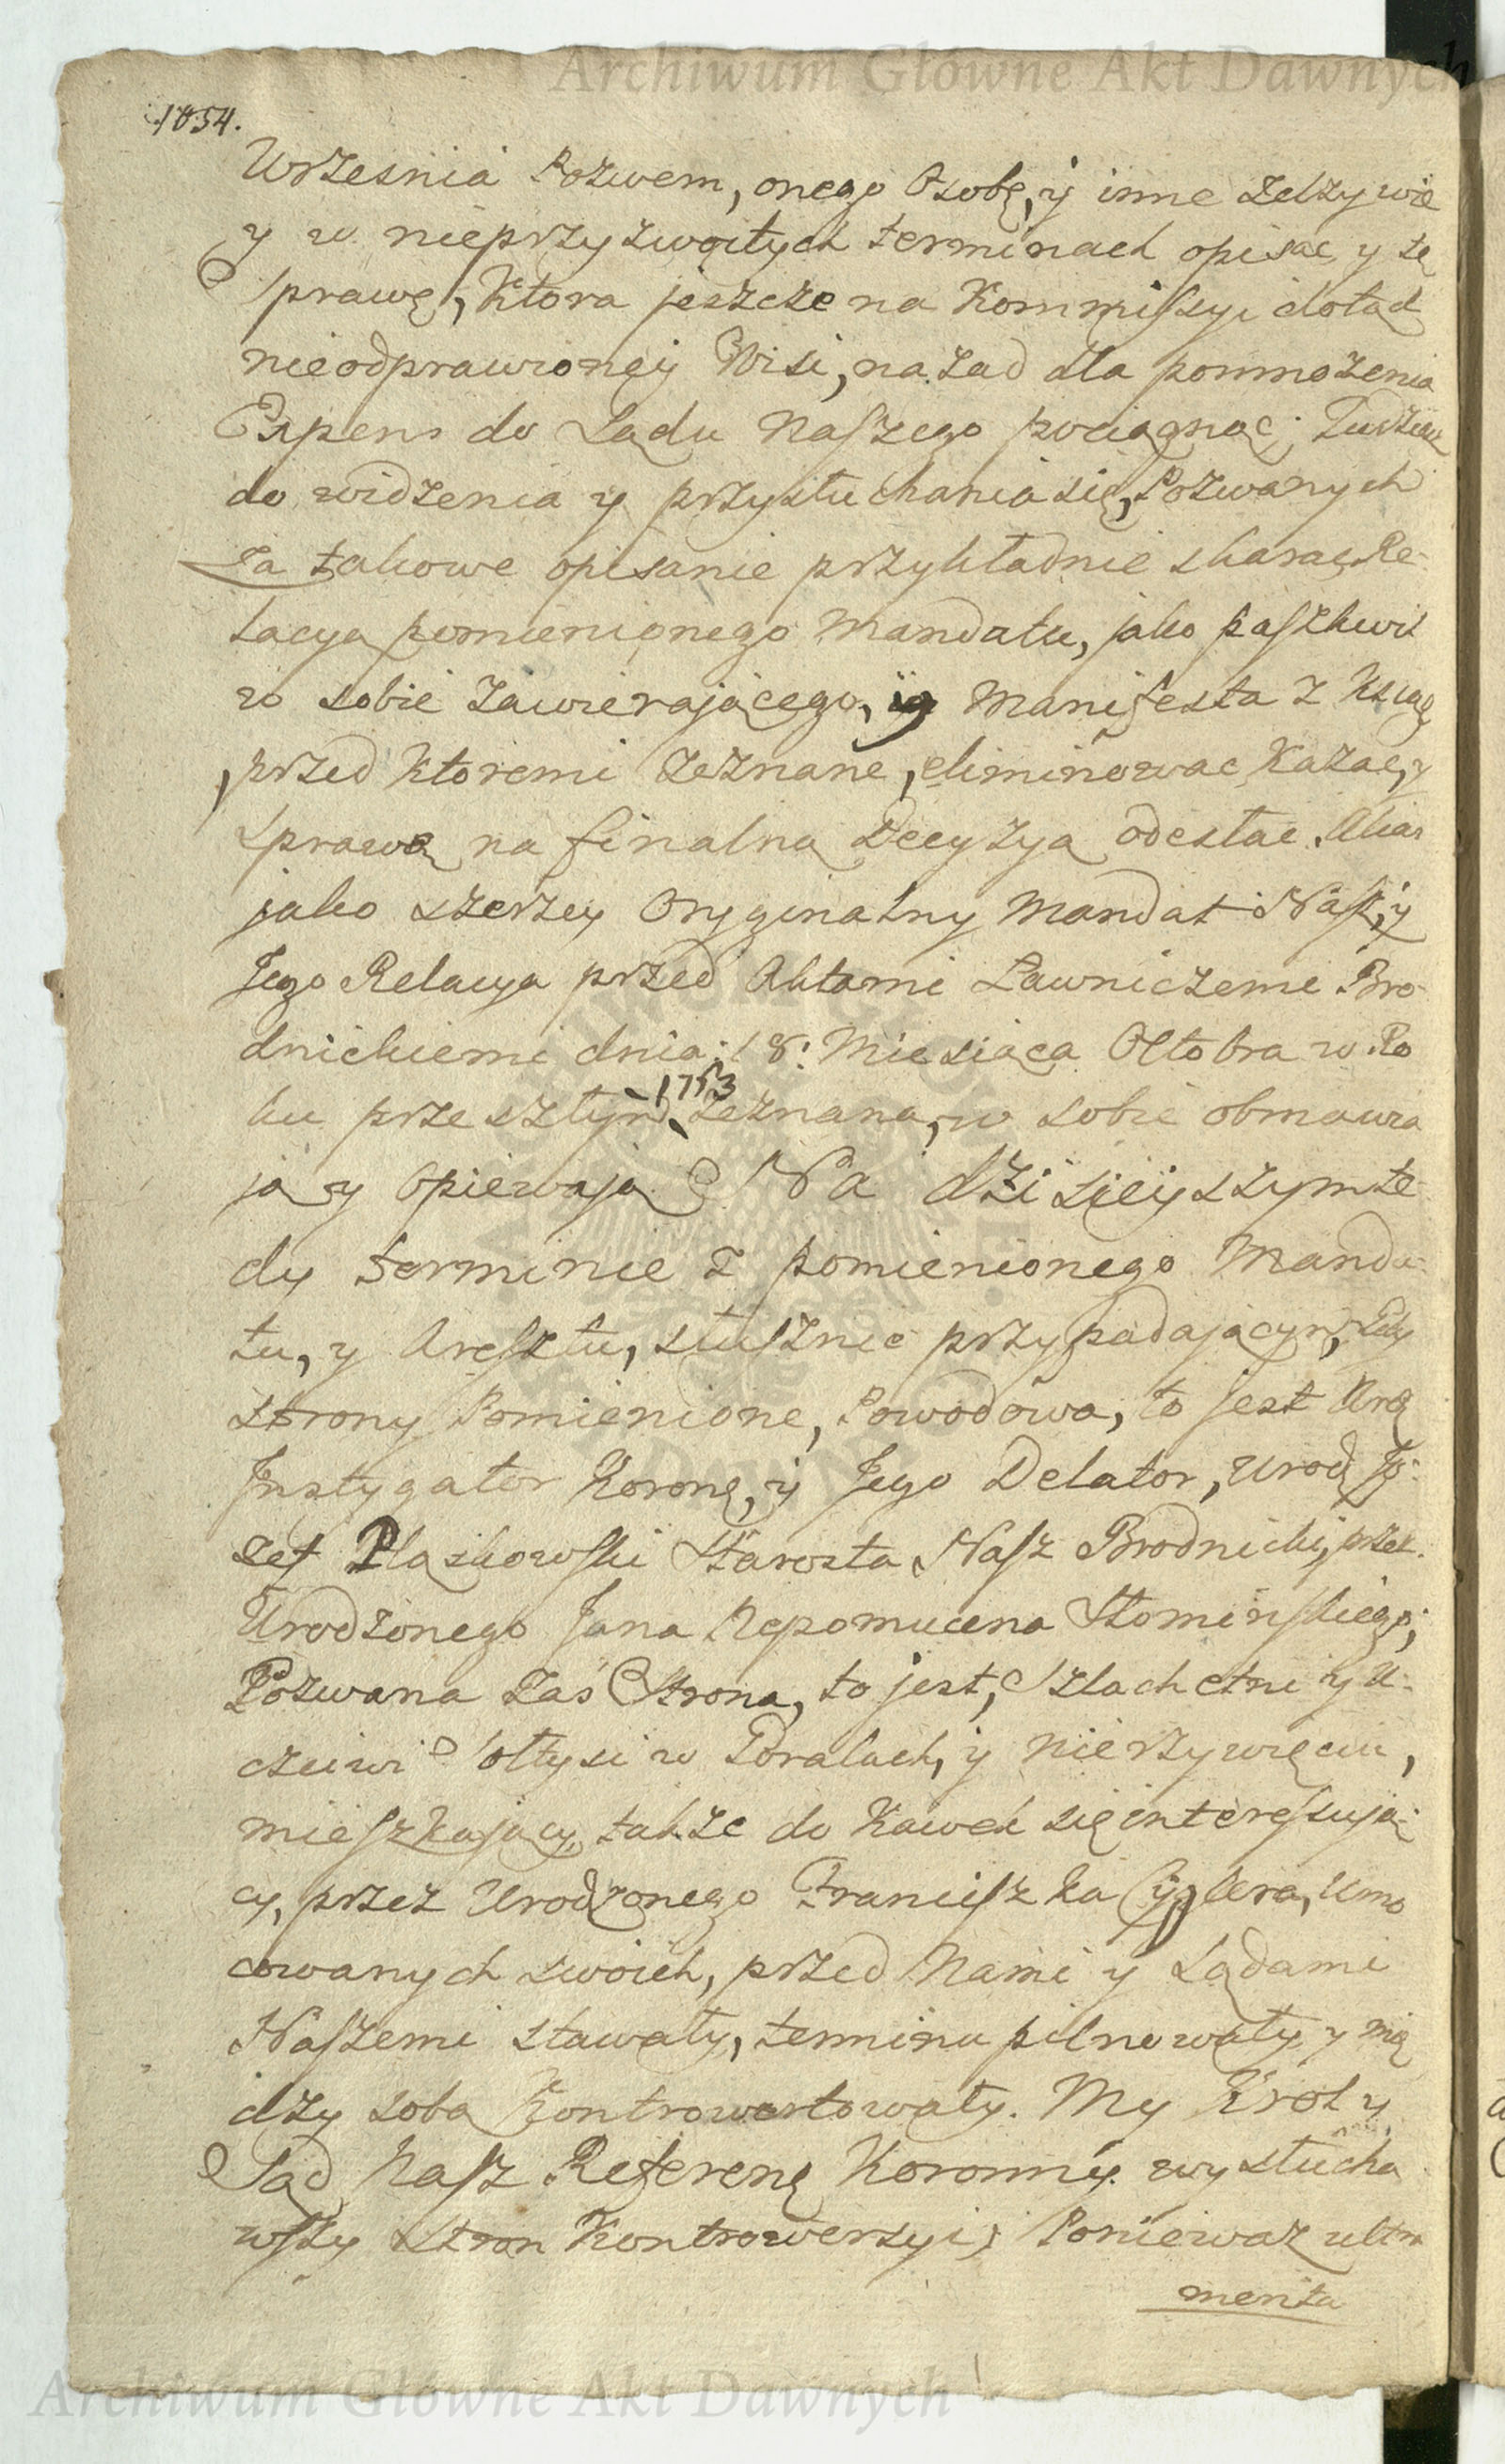 1854.
Września Pozwem, onego Osobę, y inne zelżywie
y w nieprzyzwoitych terminach opisac y tę
Sprawę, Ktora jeszcze na Kommissyi dotąd
nieodprawioney Wisi, nazad dla pomnożenia
Expens do Sądu Naszego pociągnąc; Tudziesz
do widzenia y przysłuchania się, Pozwanych
za takowe opisanie przykładnie skarac, Re-
lacyą pomienionego Mandatu, jako paszkwil
w sobie zawierającego, y Manifesta z Ksiąg
przed ktoremi zeznane, eliminowac kazac, y
Sprawę na finalną Decyzyą odesłac. Alias
jako szerzey Oryginalny Mandat Nasz, y
Jego Relacya przed Aktami Ławniczemi Bro-
dnickiemi dnia: 18: Miesiąca Oktobra w Ro
ku przeszłym 1753 zeznana, w sobie obmawia
ją y Opiewają Na dzisieyszym te-
dy terminie z pomienionego Manda-
tu, y Aresztu, słusznie przypadającym, gdy
strony Pomienione, Powodowa, to jest Urę
Instygator Koronę, y Jego Delator, Urodz Jo-
zef Pląskowski Starosta Nasz Brodnicki, przez
Urodzonego Jana Nepomucena Słominskiego;
Pozwana zaś Strona, to jest, Szlachetni y U-
czciwi Sołtysi w Poralach, y Nieżywięciu,
mieszkający, także do Kawek się interessują-
cy, przez Urodzonego Franciszka Cyglera, Umo
cowanych swoich, przed Nami y Sądami
Naszemi stawały, terminu pilnowały, y mię
dzy sobą Kontrowertowały. My Krol y
Sąd Nasz Referenę Koronny. wysłucha
wszy stron Kontrowersyi; Poniewaz ultra
menta